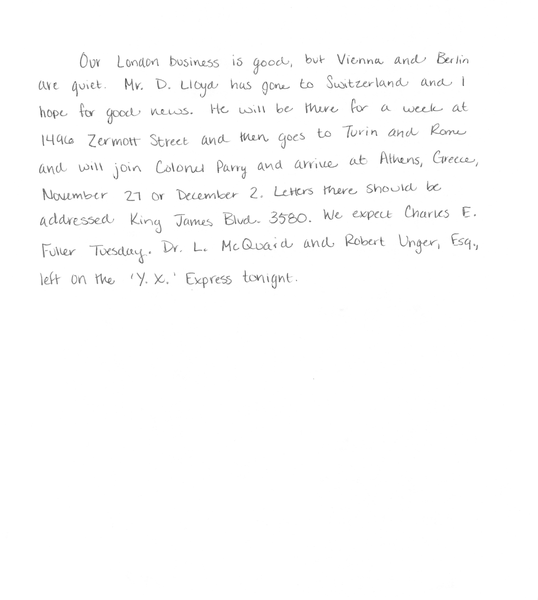 Our London business is good, but Vienna and Berlin
are quiet. Mr. D. Lloyd has gone to Switzerland and I
hope for good news. He will be there for a week at
1496 Zermott Street and then goes to Turin and Rome
and will join Colonel Parry and arrive at Athens, Greece,
November 27 or December 2. Letters there should be
addressed King James Blvd. 3580. We expect Charles E.
Fuller Tuesday. Dr. L. McQuaid and Robert Unger, Esq.,
left on the 'Y. X.' Express tonight.